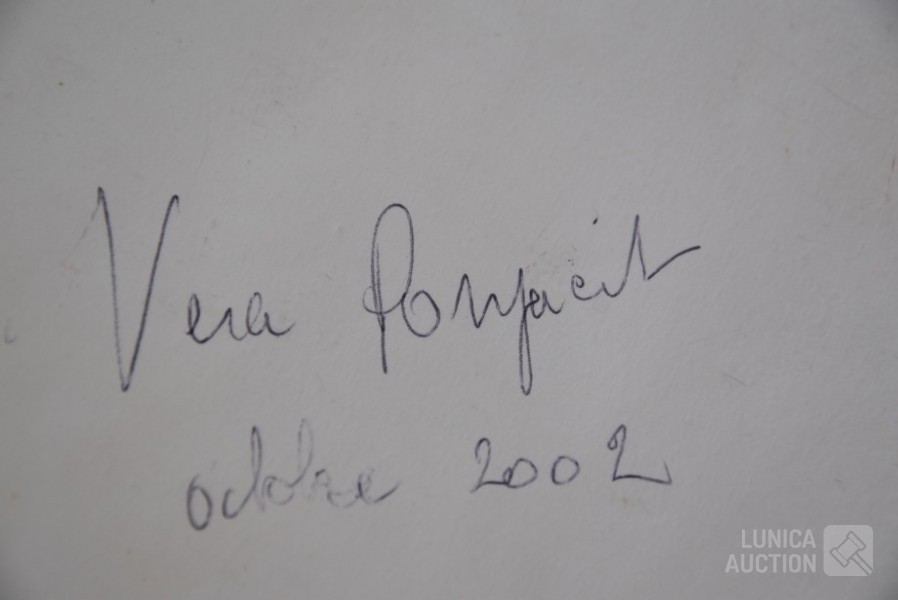 Vera
octobre 2002
LUNICA
AUCTION